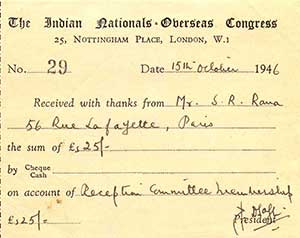 The Indian Nationals · Overseas Congress
25, Nottingham Place, London, W.1
No. 29 Date 15th October 1946
Received with thanks from Mr. S. R. Rana
56 Rue Lafayette, Paris
the sum of £525/-
by Cheque
Cash
on account of Reception Committee Membership
£525/-
President